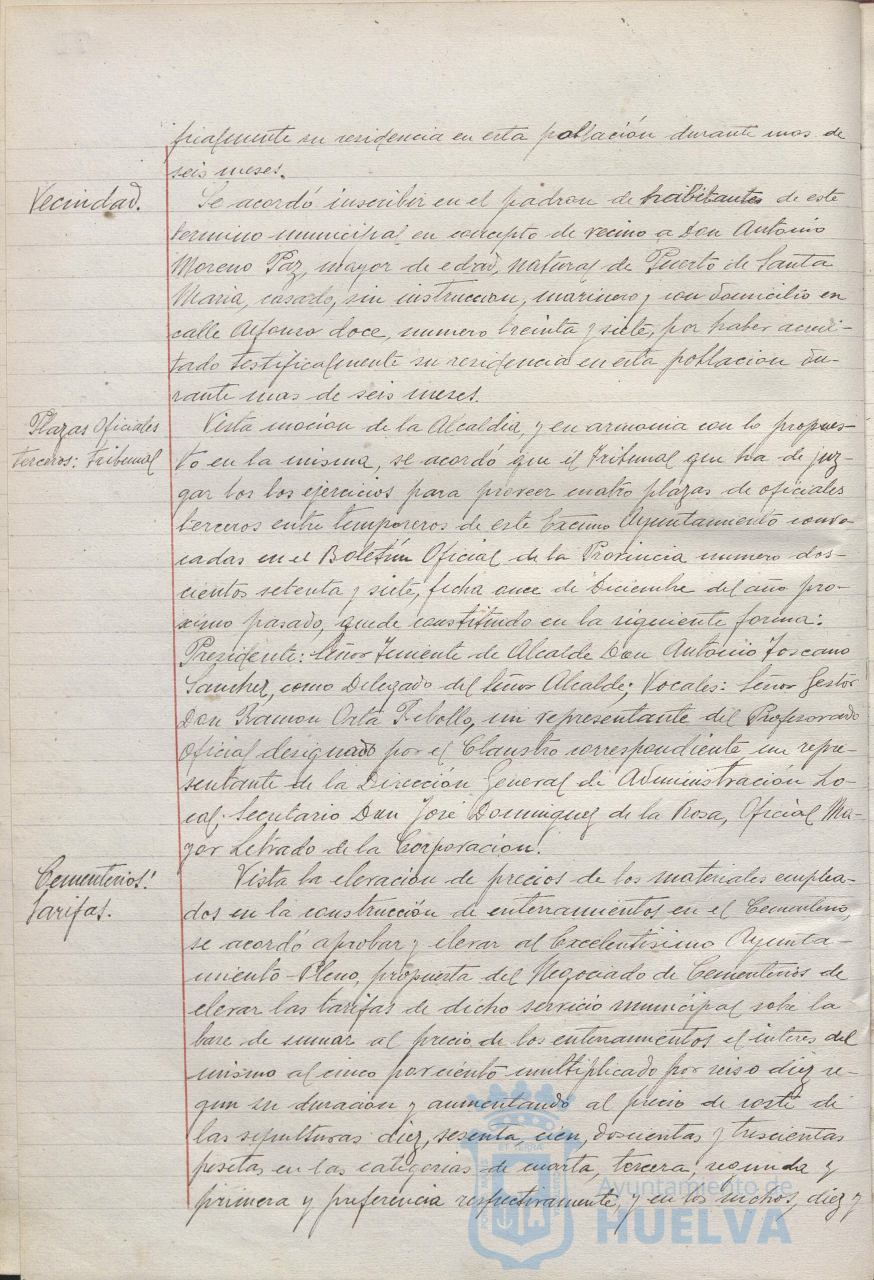 ficialmente su residencia en esta población durante mas de
seis meses.
Vecindad.
Se acordó inscribir en el padron de habitantes de este
termino municipal en concepto de vecino a Don Antonio
Moreno Paz, mayor de edad, natural de Puerto de Santa
Maria, casado, sin instruccion, marinero y con domicilio en
calle Alfonso doce, numero treinta y siete, por haber acredi-
tado testificalmente su residencia en esta poblacion du-
rante mas de seis meses.
Plazas Oficiales
terceros: Tribunal
Vista mocion de la Alcaldia, y en armonia con lo propues-
to en la misma, se acordó que el Tribunal que ha de juz-
gar los los ejercicios para proveer cuatro plazas de oficiales
terceros entre temporeros de este Excmo Ayuntamiento convo
cadas en el Boletin Oficial de la Provincia numero dos-
cientos setenta y siete, fecha once de Diciembre del año pro-
ximo pasado, quede constituido en la siguiente forma:
Presidente: Señor Teniente de Alcalde Don Antonio Toscano
Sanchez, como Delegado del Señor Alcalde; Vocales: Señor Gestor
Don Ramon Orta Rebollo, un representante del Profesorado
Oficial designado por el Claustro correspondiente un repre-
sentante de la Dirección General de Administración Lo-
cal. Secretario Don José Dominguez de la Rosa, Oficial Ma-
yor Letrado de la Corporacion.
Cementerios:
Tarifas.
Vista la elevacion de precios de los materiales emplea-
dos en la construcción de enterramientos en el Cementerio,
se acordó aprobar y elevar al Excelentisimo Ayunta-
miento Pleno, propuesta del Negociado de Cementerios de
elevar las tarifas de dicho servicio municipal sobre la
base de sumar al precio de los enterramientos el interes del
mismo al cinco por ciento multiplicado por seis o diez se-
gun su duracion y aumentando al precio de coste de
las sepulturas diez, sesenta, cien, doscientas y trescientas
pesetas en las categorias de cuarta, tercera, segunda y
primera y preferencia respectivamente, y en los nichos, diez y
Ayuntamiento de
HUELVA